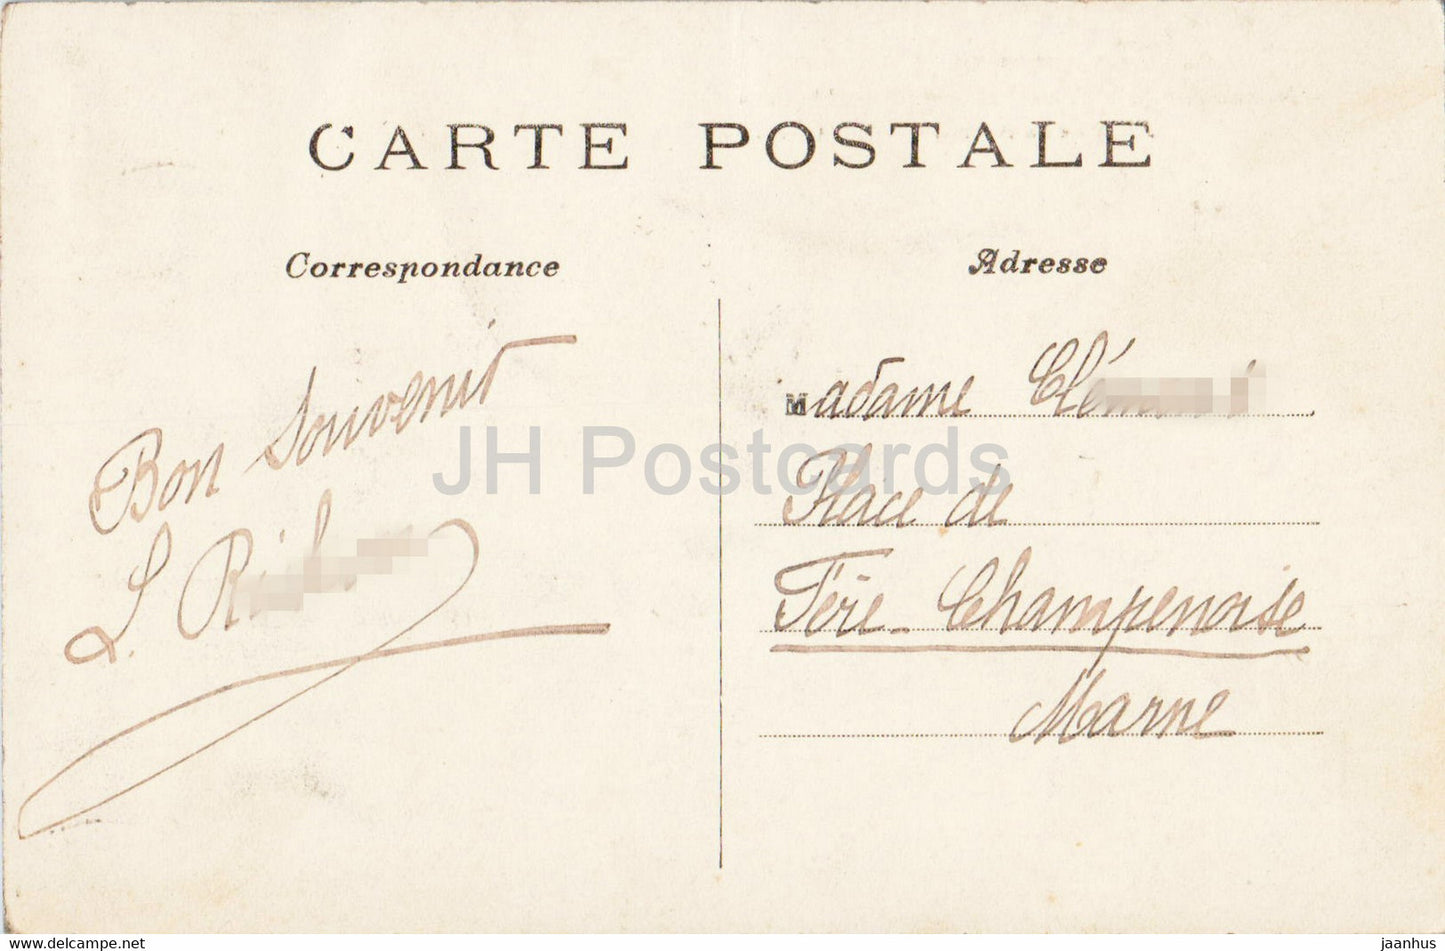 CARTE POSTALE
Correspondance
Bon Souvenir
L.
Adresse
Madame
Place de
Fère-Champenoise
Marne
JH Postcards
www.delcampe.net
jaanhus